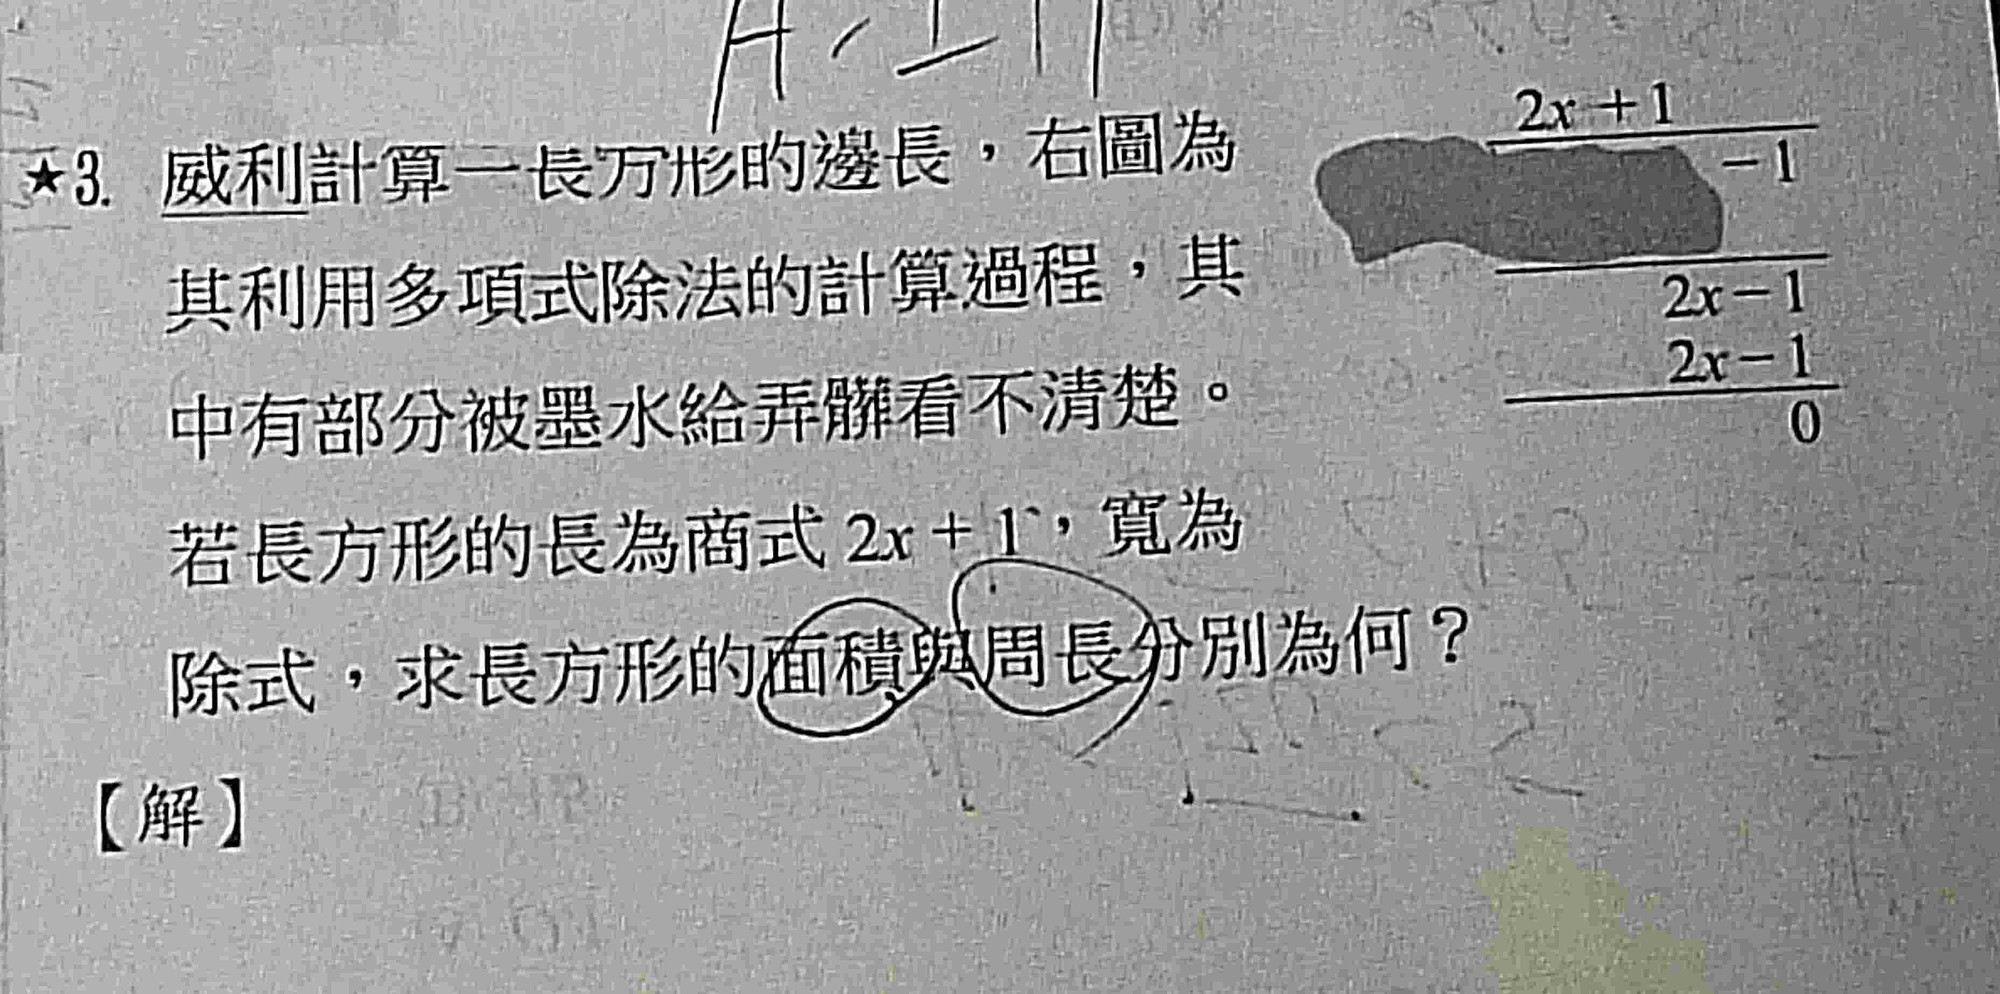 ★3. 威利計算一長方形的邊長，右圖為
其利用多項式除法的計算過程，其
中有部分被墨水給弄髒看不清楚。
若長方形的長為商式 2x + 1，寬為
除式，求長方形的面積與周長分別為何？
【解】
2x + 1
− 1
2x − 1
2x − 1
0